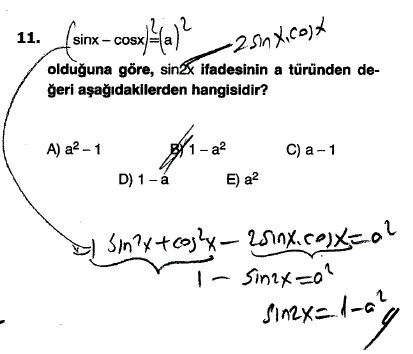 11. (sinx – cosx)²=(a)² 2sinx.cosx
olduğuna göre, sin2x ifadesinin a türünden de-
ğeri aşağıdakilerden hangisidir?
A) a² – 1 B) 1 – a² C) a – 1
D) 1 – a E) a²
sin²x + cos²x – 2sinx.cosx = a²
1 – sin2x = a²
sin2x = 1 – a²